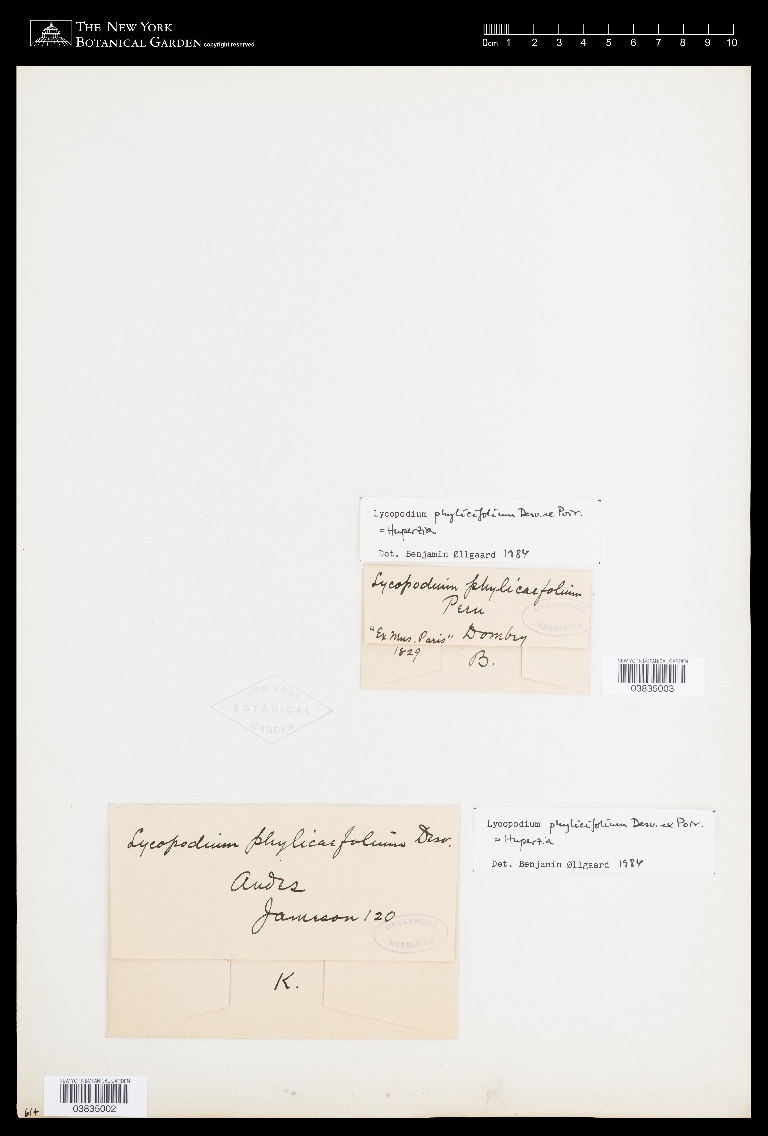 THE NEW YORK
BOTANICAL GARDEN copyright reserved
0cm 1 2 3 4 5 6 7 8 9 10
Lycopodium phylicifolium Desv. ex Poir.
= Huperzia
Det. Benjamin Øllgaard 1984
Lycopodium phylicaefolium
Peru
"Ex Mus. Paris" Dombey
1829
B.
UNDERWOOD
HERBARIUM
NEW YORK BOTANICAL GARDEN
03835003
NEW YORK
BOTANICAL
GARDEN
Lycopodium phylicaefolium Desv.
Andes
Jameson 120
UNDERWOOD
HERBARIUM
K.
Lycopodium phylicifolium Desv. ex Poir.
= Huperzia
Det. Benjamin Øllgaard 1984
NEW YORK BOTANICAL GARDEN
03835002